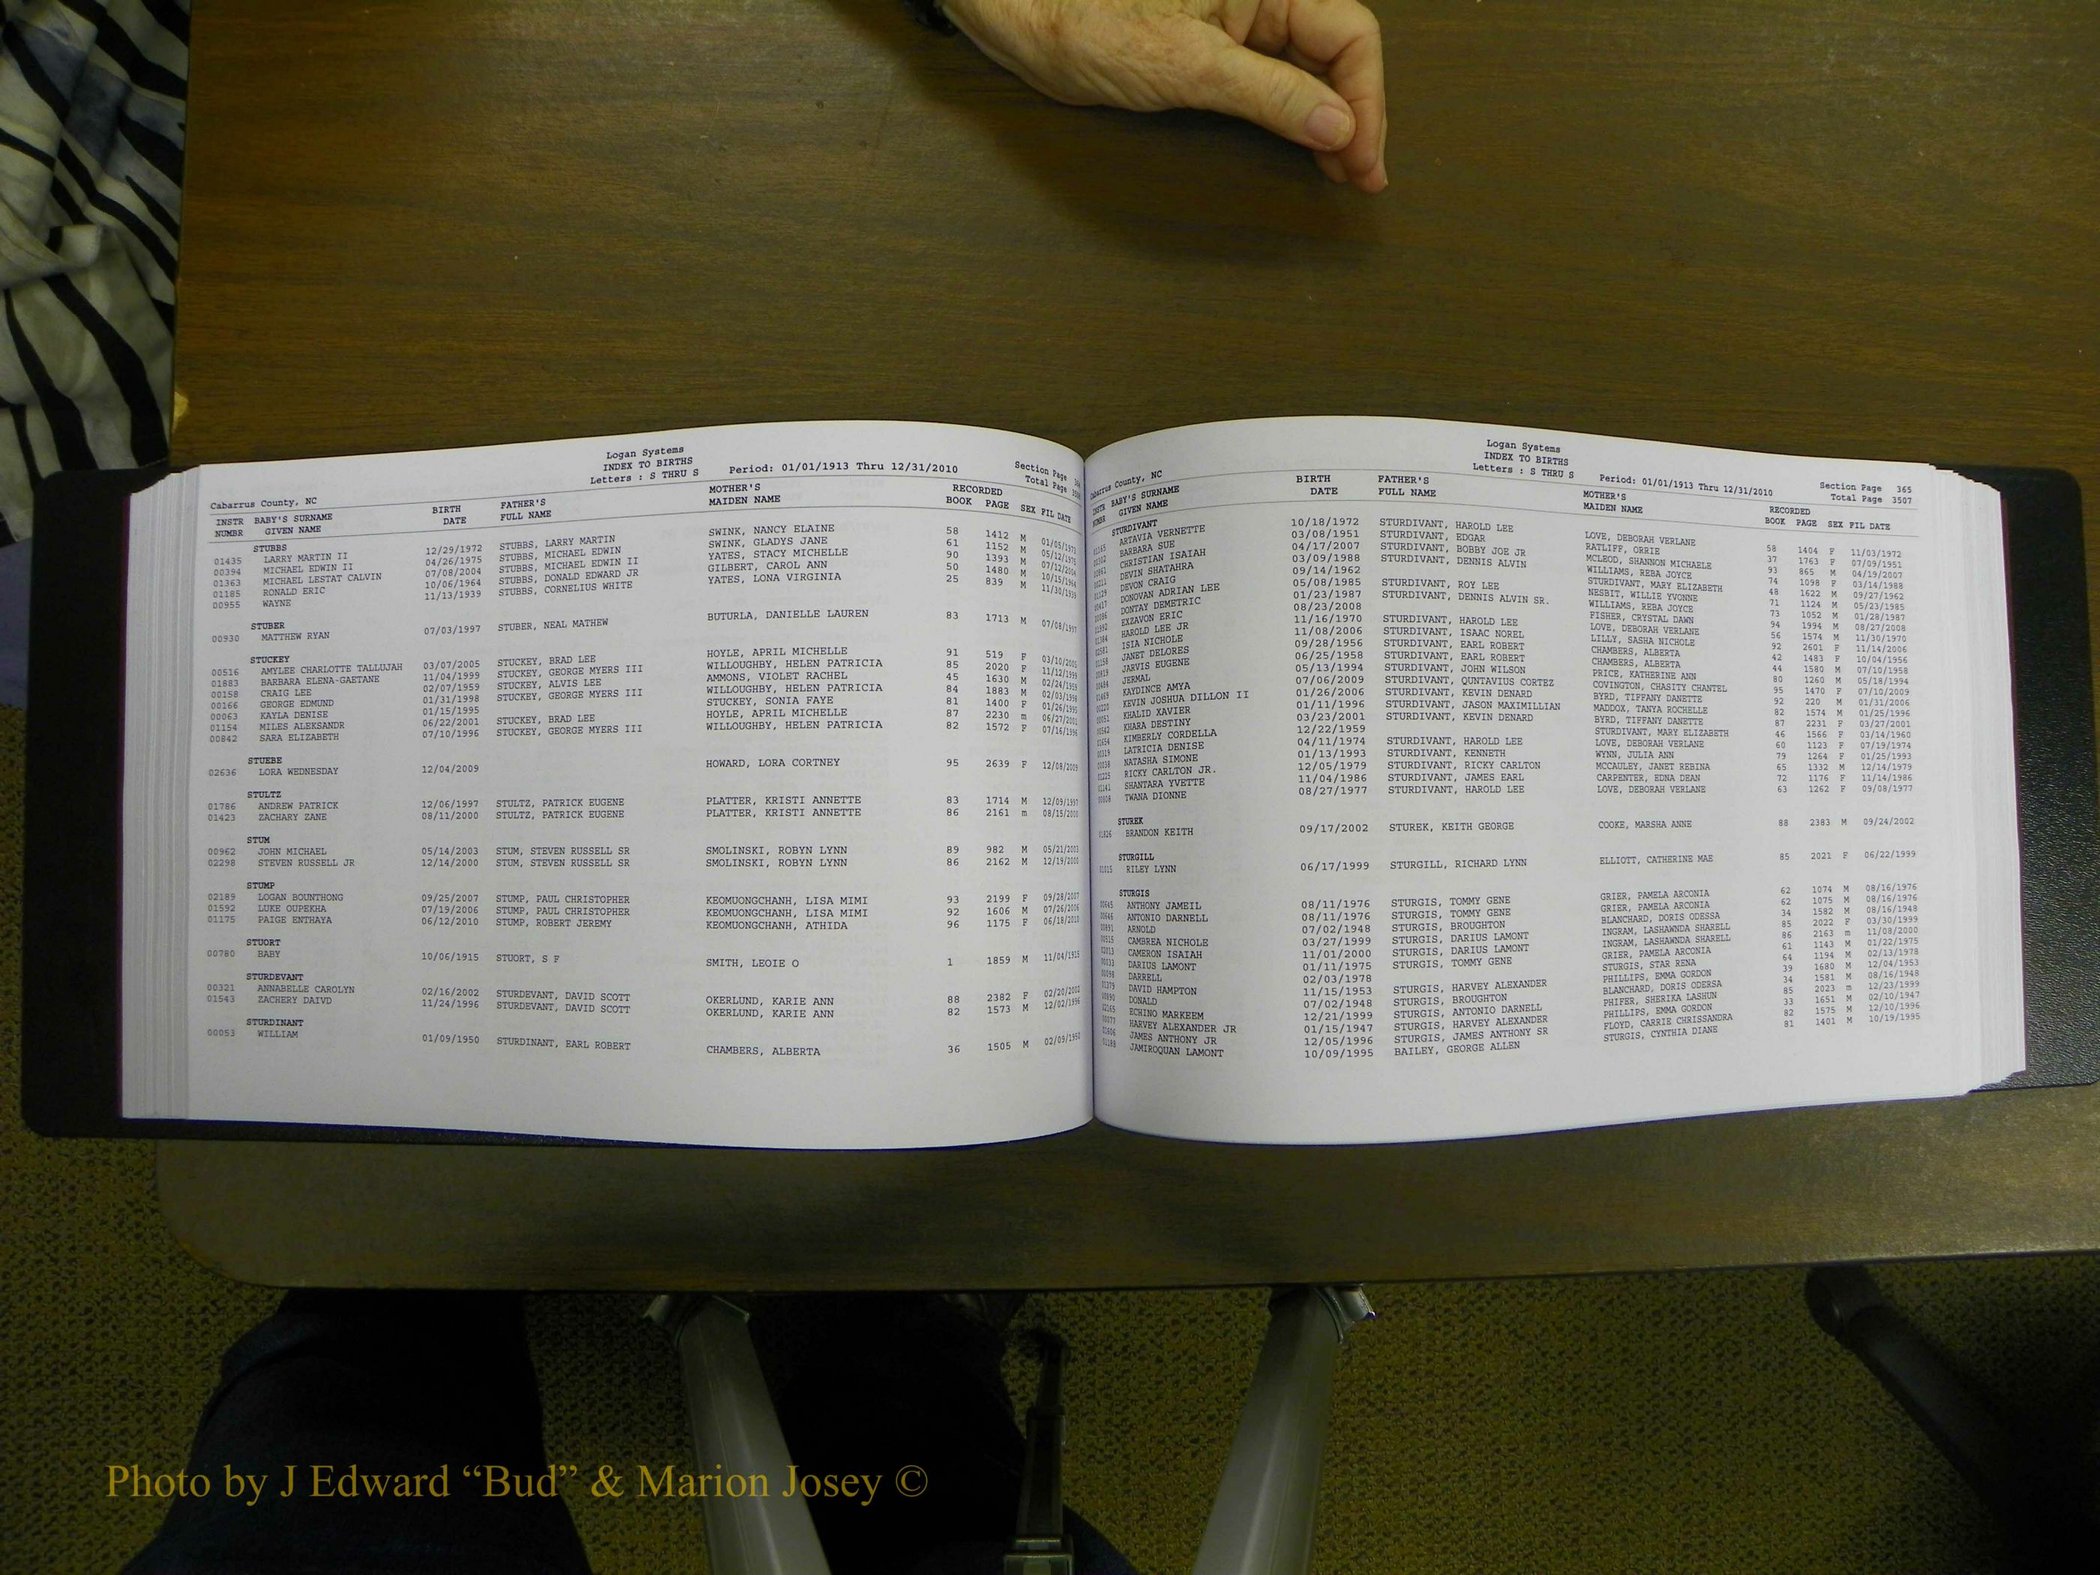 Logan Systems
INDEX TO BIRTHS
Letters : S THRU S
Period: 01/01/1913 Thru 12/31/2010
Section Page
Total Page
Cabarrus County, NC
INSTR BABY'S SURNAME BIRTH FATHER'S MOTHER'S RECORDED
NUMBR GIVEN NAME DATE FULL NAME MAIDEN NAME BOOK PAGE SEX FIL DATE
STUBBS
01435 LARRY MARTIN II 12/29/1972 STUBBS, LARRY MARTIN SWINK, NANCY ELAINE 58 1412 M 01/05/1973
00394 MICHAEL EDWIN II 04/26/1975 STUBBS, MICHAEL EDWIN SWINK, GLADYS JANE 61 1152 M 05/12/1975
01363 MICHAEL LESTAT CALVIN 07/08/2004 STUBBS, MICHAEL EDWIN II YATES, STACY MICHELLE 90 1393 M 07/12/2004
01185 RONALD ERIC 10/06/1964 STUBBS, DONALD EDWARD JR GILBERT, CAROL ANN 50 1480 M 10/15/1964
00955 WAYNE 11/13/1939 STUBBS, CORNELIUS WHITE YATES, LONA VIRGINIA 25 839 M 11/30/1939
STUBER
00930 MATTHEW RYAN 07/03/1997 STUBER, NEAL MATHEW BUTURLA, DANIELLE LAUREN 83 1713 M 07/08/1997
STUCKEY
00516 AMYLEE CHARLOTTE TALLUJAH 03/07/2005 STUCKEY, BRAD LEE HOYLE, APRIL MICHELLE 91 519 F 03/10/2005
01883 BARBARA ELENA-GAETANE 11/04/1999 STUCKEY, GEORGE MYERS III WILLOUGHBY, HELEN PATRICIA 85 2020 F 11/12/1999
00158 CRAIG LEE 02/07/1959 STUCKEY, ALVIS LEE AMMONS, VIOLET RACHEL 45 1630 M 02/24/1959
00166 GEORGE EDMUND 01/31/1998 STUCKEY, GEORGE MYERS III WILLOUGHBY, HELEN PATRICIA 84 1883 M 02/03/1998
00063 KAYLA DENISE 01/15/1995 STUCKEY, SONIA FAYE 81 1400 F 01/26/1995
01154 MILES ALEKSANDR 06/22/2001 STUCKEY, BRAD LEE HOYLE, APRIL MICHELLE 87 2230 m 06/27/2001
00842 SARA ELIZABETH 07/10/1996 STUCKEY, GEORGE MYERS III WILLOUGHBY, HELEN PATRICIA 82 1572 F 07/16/1996
STUEBE
02636 LORA WEDNESDAY 12/04/2009 HOWARD, LORA CORTNEY 95 2639 F 12/08/2009
STULTZ
01786 ANDREW PATRICK 12/06/1997 STULTZ, PATRICK EUGENE PLATTER, KRISTI ANNETTE 83 1714 M 12/09/1997
01423 ZACHARY ZANE 08/11/2000 STULTZ, PATRICK EUGENE PLATTER, KRISTI ANNETTE 86 2161 m 08/15/2000
STUM
00962 JOHN MICHAEL 05/14/2003 STUM, STEVEN RUSSELL SR SMOLINSKI, ROBYN LYNN 89 982 M 05/21/2003
02298 STEVEN RUSSELL JR 12/14/2000 STUM, STEVEN RUSSELL SR SMOLINSKI, ROBYN LYNN 86 2162 M 12/19/2000
STUMP
02189 LOGAN BOUNTHONG 09/25/2007 STUMP, PAUL CHRISTOPHER KEOMUONGCHANH, LISA MIMI 93 2199 F 09/28/2007
01592 LUKE OUPEKHA 07/19/2006 STUMP, PAUL CHRISTOPHER KEOMUONGCHANH, LISA MIMI 92 1606 M 07/26/2006
01175 PAIGE ENTHAYA 06/12/2010 STUMP, ROBERT JEREMY KEOMUONGCHANH, ATHIDA 96 1175 F 06/18/2010
STUORT
00780 BABY 10/06/1915 STUORT, S F SMITH, LEOIE O 1 1859 M 11/04/1915
STURDEVANT
00321 ANNABELLE CAROLYN 02/16/2002 STURDEVANT, DAVID SCOTT OKERLUND, KARIE ANN 88 2382 F 02/20/2002
01543 ZACHERY DAIVD 11/24/1996 STURDEVANT, DAVID SCOTT OKERLUND, KARIE ANN 82 1573 M 12/02/1996
STURDINANT
00053 WILLIAM 01/09/1950 STURDINANT, EARL ROBERT CHAMBERS, ALBERTA 36 1505 M 02/09/1950
Logan Systems
INDEX TO BIRTHS
Letters : S THRU S
Period: 01/01/1913 Thru 12/31/2010
Section Page 365
Total Page 3507
Cabarrus County, NC
INSTR BABY'S SURNAME BIRTH FATHER'S MOTHER'S RECORDED
NUMBR GIVEN NAME DATE FULL NAME MAIDEN NAME BOOK PAGE SEX FIL DATE
STURDIVANT
ARTAVIA VERNETTE 10/18/1972 STURDIVANT, HAROLD LEE LOVE, DEBORAH VERLANE 58 1404 F 11/03/1972
BARBARA SUE 03/08/1951 STURDIVANT, EDGAR RATLIFF, ORRIE 37 1763 F 07/09/1951
CHRISTIAN ISAIAH 04/17/2007 STURDIVANT, BOBBY JOE JR MCLEOD, SHANNON MICHAELE 93 865 M 04/19/2007
DEVIN SHATAHRA 03/09/1988 STURDIVANT, DENNIS ALVIN WILLIAMS, REBA JOYCE 74 1098 F 03/14/1988
DEVON CRAIG 09/14/1962 STURDIVANT, MARY ELIZABETH 48 1622 M 09/27/1962
DONOVAN ADRIAN LEE 05/08/1985 STURDIVANT, ROY LEE NESBIT, WILLIE YVONNE 71 1124 M 05/23/1985
DONTAY DEMETRIC 01/23/1987 STURDIVANT, DENNIS ALVIN SR. WILLIAMS, REBA JOYCE 73 1052 M 01/28/1987
EXZAVON ERIC 08/23/2008 FISHER, CRYSTAL DAWN 94 1994 M 08/27/2008
HAROLD LEE JR 11/16/1970 STURDIVANT, HAROLD LEE LOVE, DEBORAH VERLANE 56 1574 M 11/30/1970
ISIA NICHOLE 11/08/2006 STURDIVANT, ISAAC NOREL LILLY, SASHA NICHOLE 92 2601 F 11/14/2006
JANET DELORES 09/28/1956 STURDIVANT, EARL ROBERT CHAMBERS, ALBERTA 42 1483 F 10/04/1956
JARVIS EUGENE 06/25/1958 STURDIVANT, EARL ROBERT CHAMBERS, ALBERTA 44 1580 M 07/10/1958
JERMAL 05/13/1994 STURDIVANT, JOHN WILSON PRICE, KATHERINE ANN 80 1260 M 05/18/1994
KAYDINCE AMYA 07/06/2009 STURDIVANT, QUNTAVIUS CORTEZ COVINGTON, CHASITY CHANTEL 95 1470 F 07/10/2009
KEVIN JOSHUA DILLON II 01/26/2006 STURDIVANT, KEVIN DENARD BYRD, TIFFANY DANETTE 92 220 M 01/31/2006
KHALID XAVIER 01/11/1996 STURDIVANT, JASON MAXIMILLIAN MADDOX, TANYA ROCHELLE 82 1574 M 01/25/1996
KHARA DESTINY 03/23/2001 STURDIVANT, KEVIN DENARD BYRD, TIFFANY DANETTE 87 2231 F 03/27/2001
KIMBERLY CORDELLA 12/22/1959 STURDIVANT, MARY ELIZABETH 46 1566 F 03/14/1960
LATRICIA DENISE 04/11/1974 STURDIVANT, HAROLD LEE LOVE, DEBORAH VERLANE 60 1123 F 07/19/1974
NATASHA SIMONE 01/13/1993 STURDIVANT, KENNETH WYNN, JULIA ANN 79 1264 F 01/25/1993
RICKY CARLTON JR. 12/05/1979 STURDIVANT, RICKY CARLTON MCCAULEY, JANET REBINA 65 1332 M 12/14/1979
SHANTARA YVETTE 11/04/1986 STURDIVANT, JAMES EARL CARPENTER, EDNA DEAN 72 1176 F 11/14/1986
TWANA DIONNE 08/27/1977 STURDIVANT, HAROLD LEE LOVE, DEBORAH VERLANE 63 1262 F 09/08/1977
STUREK
BRANDON KEITH 09/17/2002 STUREK, KEITH GEORGE COOKE, MARSHA ANNE 88 2383 M 09/24/2002
STURGILL
RILEY LYNN 06/17/1999 STURGILL, RICHARD LYNN ELLIOTT, CATHERINE MAE 85 2021 F 06/22/1999
STURGIS
ANTHONY JAMEIL 08/11/1976 STURGIS, TOMMY GENE GRIER, PAMELA ARCONIA 62 1074 M 08/16/1976
ANTONIO DARNELL 08/11/1976 STURGIS, TOMMY GENE GRIER, PAMELA ARCONIA 62 1075 M 08/16/1976
ARNOLD 07/02/1948 STURGIS, BROUGHTON BLANCHARD, DORIS ODESSA 34 1582 M 08/16/1948
CAMBREA NICHOLE 03/27/1999 STURGIS, DARIUS LAMONT INGRAM, LASHAWNDA SHARELL 85 2022 F 03/30/1999
CAMERON ISAIAH 11/01/2000 STURGIS, DARIUS LAMONT INGRAM, LASHAWNDA SHARELL 86 2163 m 11/08/2000
DARIUS LAMONT 01/11/1975 STURGIS, TOMMY GENE GRIER, PAMELA ARCONIA 61 1143 M 01/22/1975
DARRELL 02/03/1978 STURGIS, STAR RENA 64 1194 M 02/13/1978
DAVID HAMPTON 11/15/1953 STURGIS, HARVEY ALEXANDER PHILLIPS, EMMA GORDON 39 1680 M 12/04/1953
DONALD 07/02/1948 STURGIS, BROUGHTON BLANCHARD, DORIS ODERSA 34 1581 M 08/16/1948
ECHINO MARKEEM 12/21/1999 STURGIS, ANTONIO DARNELL PHIFER, SHERIKA LASHUN 85 2023 m 12/23/1999
HARVEY ALEXANDER JR 01/15/1947 STURGIS, HARVEY ALEXANDER PHILLIPS, EMMA GORDON 33 1651 M 02/10/1947
JAMES ANTHONY JR 12/05/1996 STURGIS, JAMES ANTHONY SR FLOYD, CARRIE CHRISSANDRA 82 1575 M 12/10/1996
JAMIROQUAN LAMONT 10/09/1995 BAILEY, GEORGE ALLEN STURGIS, CYNTHIA DIANE 81 1401 M 10/19/1995
Photo by J Edward “Bud” & Marion Josey ©